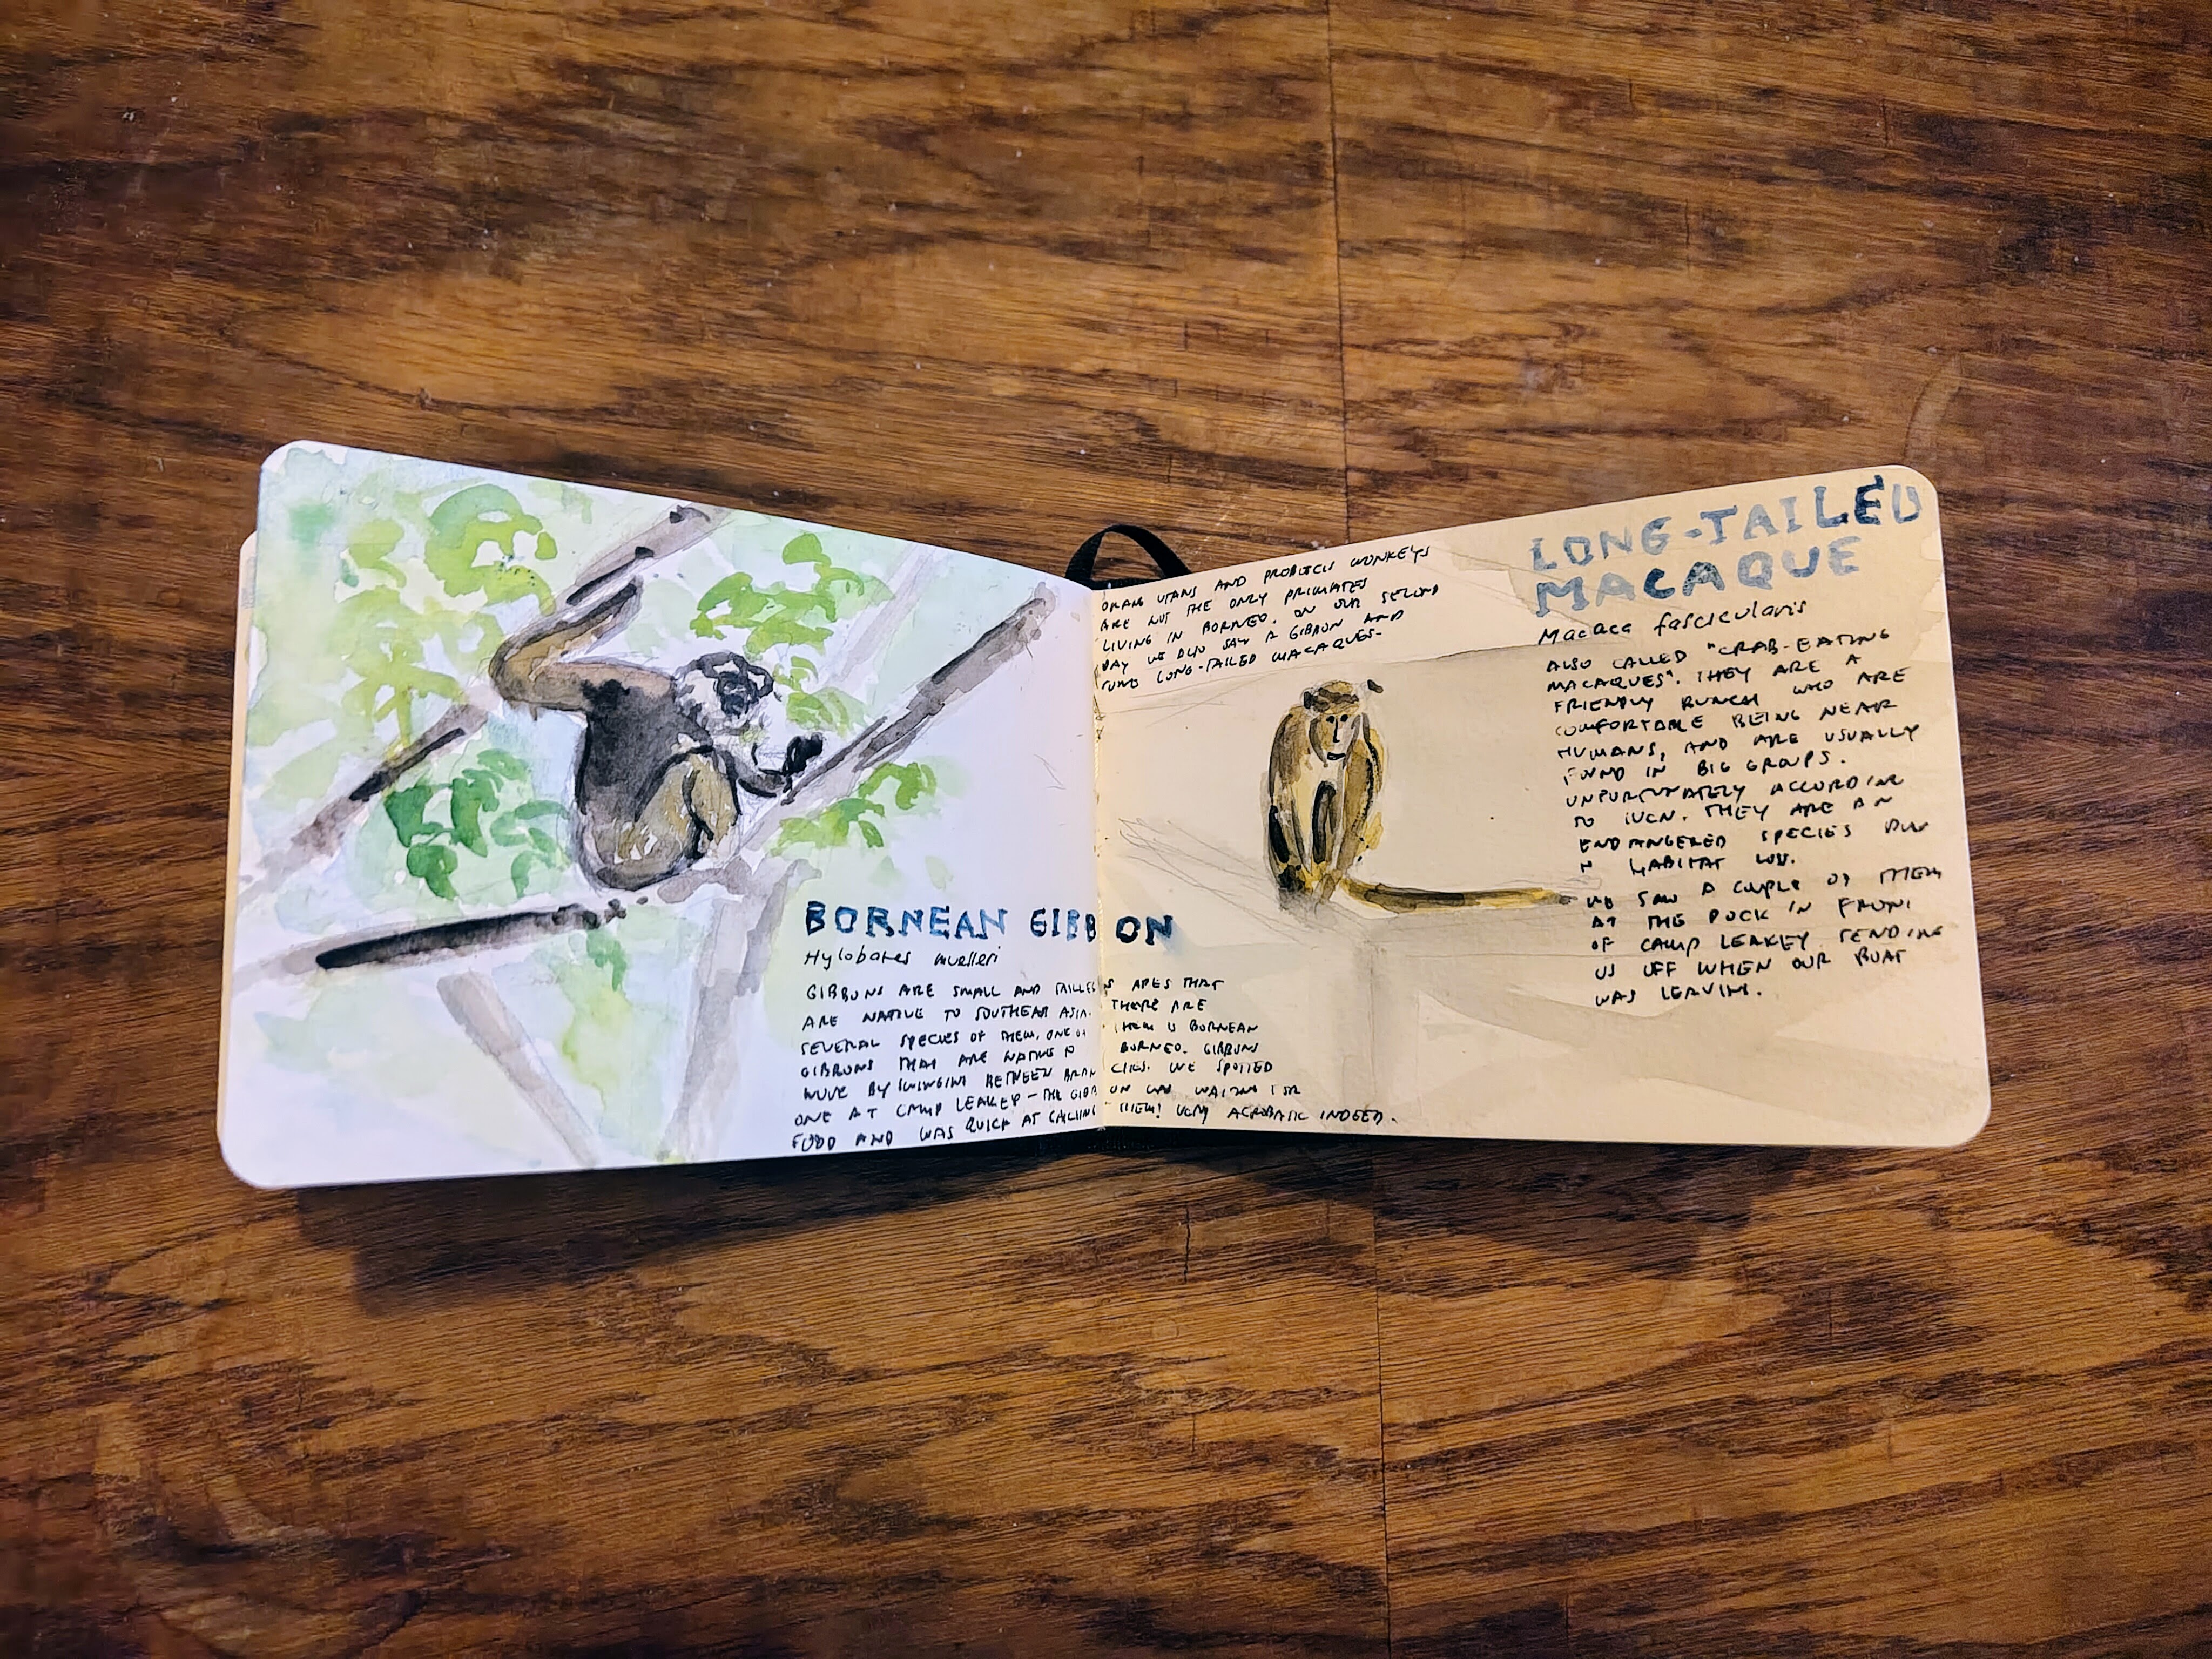 BORNEAN GIBBON
Hylobates muelleri
GIBBONS ARE SMALL AND TAILLESS APES THAT
ARE NATIVE TO SOUTHEAST ASIA. THERE ARE
SEVERAL SPECIES OF THEM. ONE OF THEM IS BORNEAN
GIBBONS THAT ARE NATIVE TO BORNEO. GIBBONS
MOVE BY SWINGING BETWEEN BRANCHES. WE SPOTTED
ONE AT CAMP LEAKEY - THE GIBBON WAS WAITING FOR
FOOD AND WAS QUICK AT CATCHING THEM! VERY ACROBATIC INDEED.
ORANG UTANS AND PROBOSCIS MONKEYS
ARE NOT THE ONLY PRIMATES
LIVING IN BORNEO. ON OUR SECOND
DAY WE ALSO SAW A GIBBON AND
SOME LONG-TAILED MACAQUES.
LONG-TAILED
MACAQUE
Macaca fascicularis
ALSO CALLED "CRAB-EATING
MACAQUES". THEY ARE A
FRIENDLY BUNCH WHO ARE
COMFORTABLE BEING NEAR
HUMANS, AND ARE USUALLY
FOUND IN BIG GROUPS.
UNFORTUNATELY ACCORDING
TO IUCN. THEY ARE AN
ENDANGERED SPECIES DUE
TO HABITAT LOSS.
WE SAW A COUPLE OF THEM
AT THE DOCK IN FRONT
OF CAMP LEAKEY SENDING
US OFF WHEN OUR BOAT
WAS LEAVING.